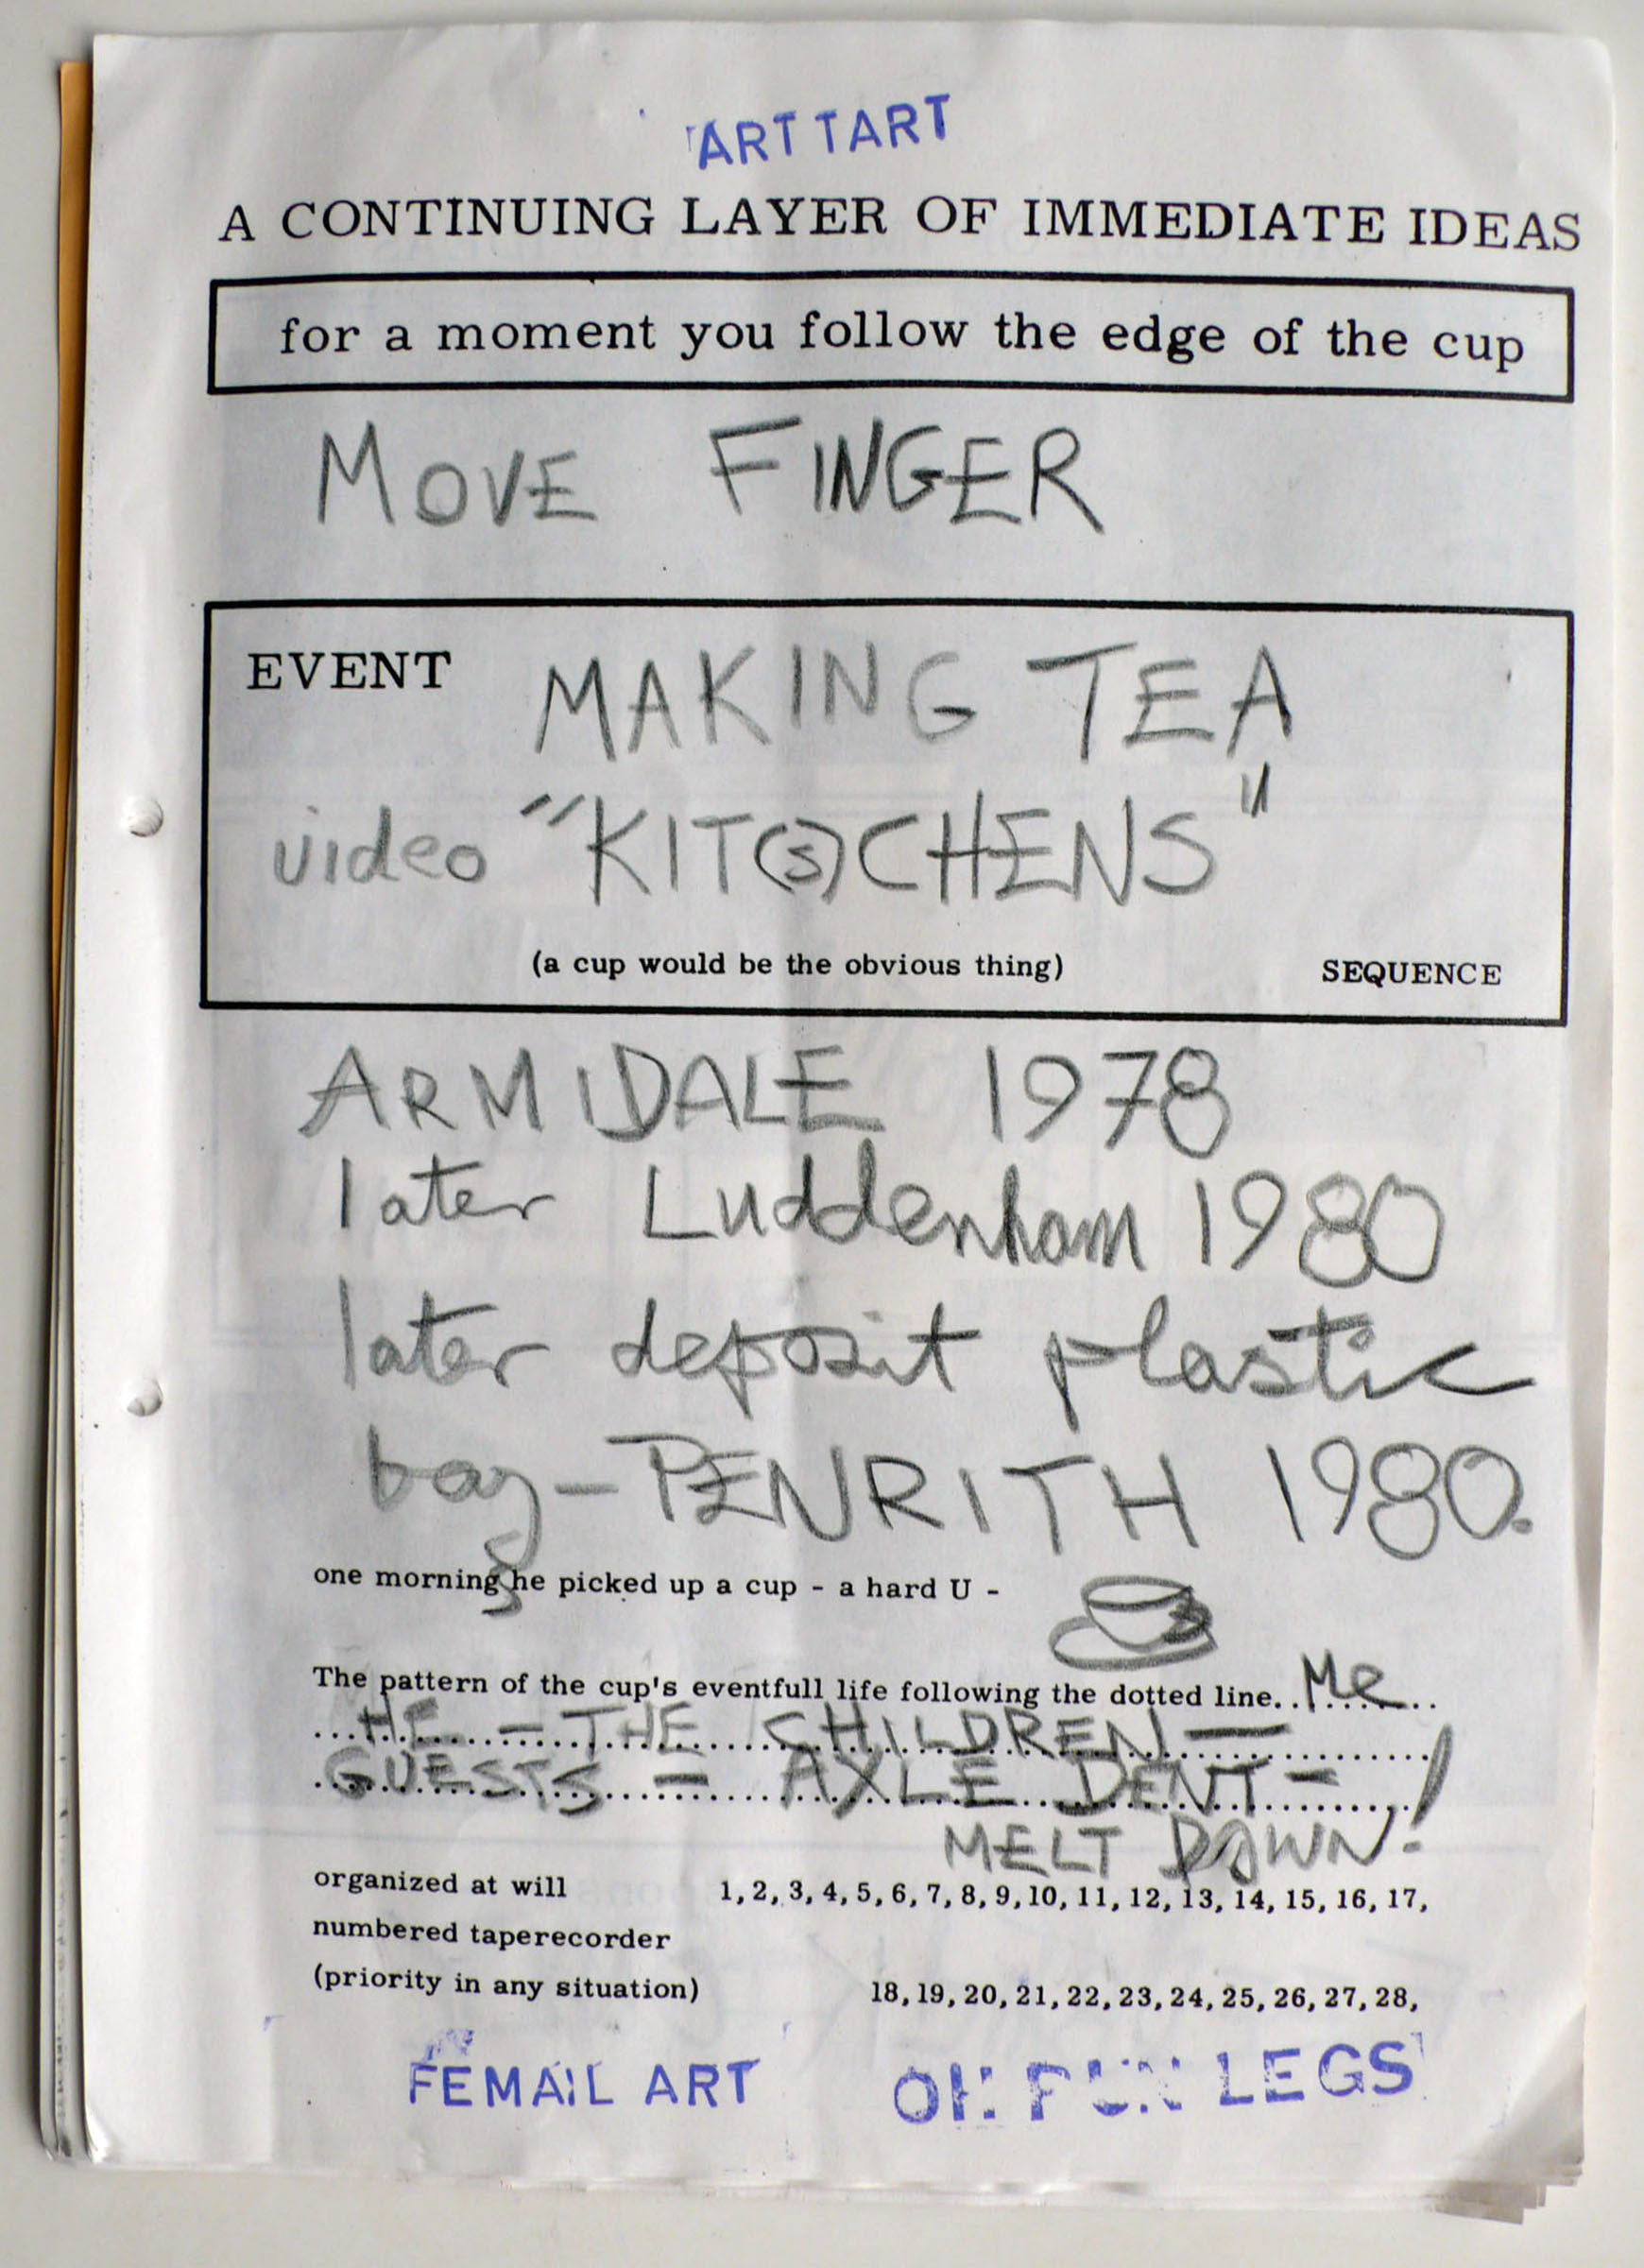 ART TART
A CONTINUING LAYER OF IMMEDIATE IDEAS
for a moment you follow the edge of the cup
MOVE FINGER
EVENT MAKING TEA
video "KIT(S)CHENS"
(a cup would be the obvious thing) SEQUENCE
ARMIDALE 1978
later Luddenham 1980
later deposit plastic
bag - PENRITH 1980.
one morning she picked up a cup - a hard U -
The pattern of the cup's eventfull life following the dotted line. . Me
HE - THE CHILDREN -
GUESTS - AXLE DENT - !
MELT DOWN.
organized at will 1, 2, 3, 4, 5, 6, 7, 8, 9, 10, 11, 12, 13, 14, 15, 16, 17,
numbered taperecorder
(priority in any situation) 18, 19, 20, 21, 22, 23, 24, 25, 26, 27, 28,
FEMAIL ART LEGS